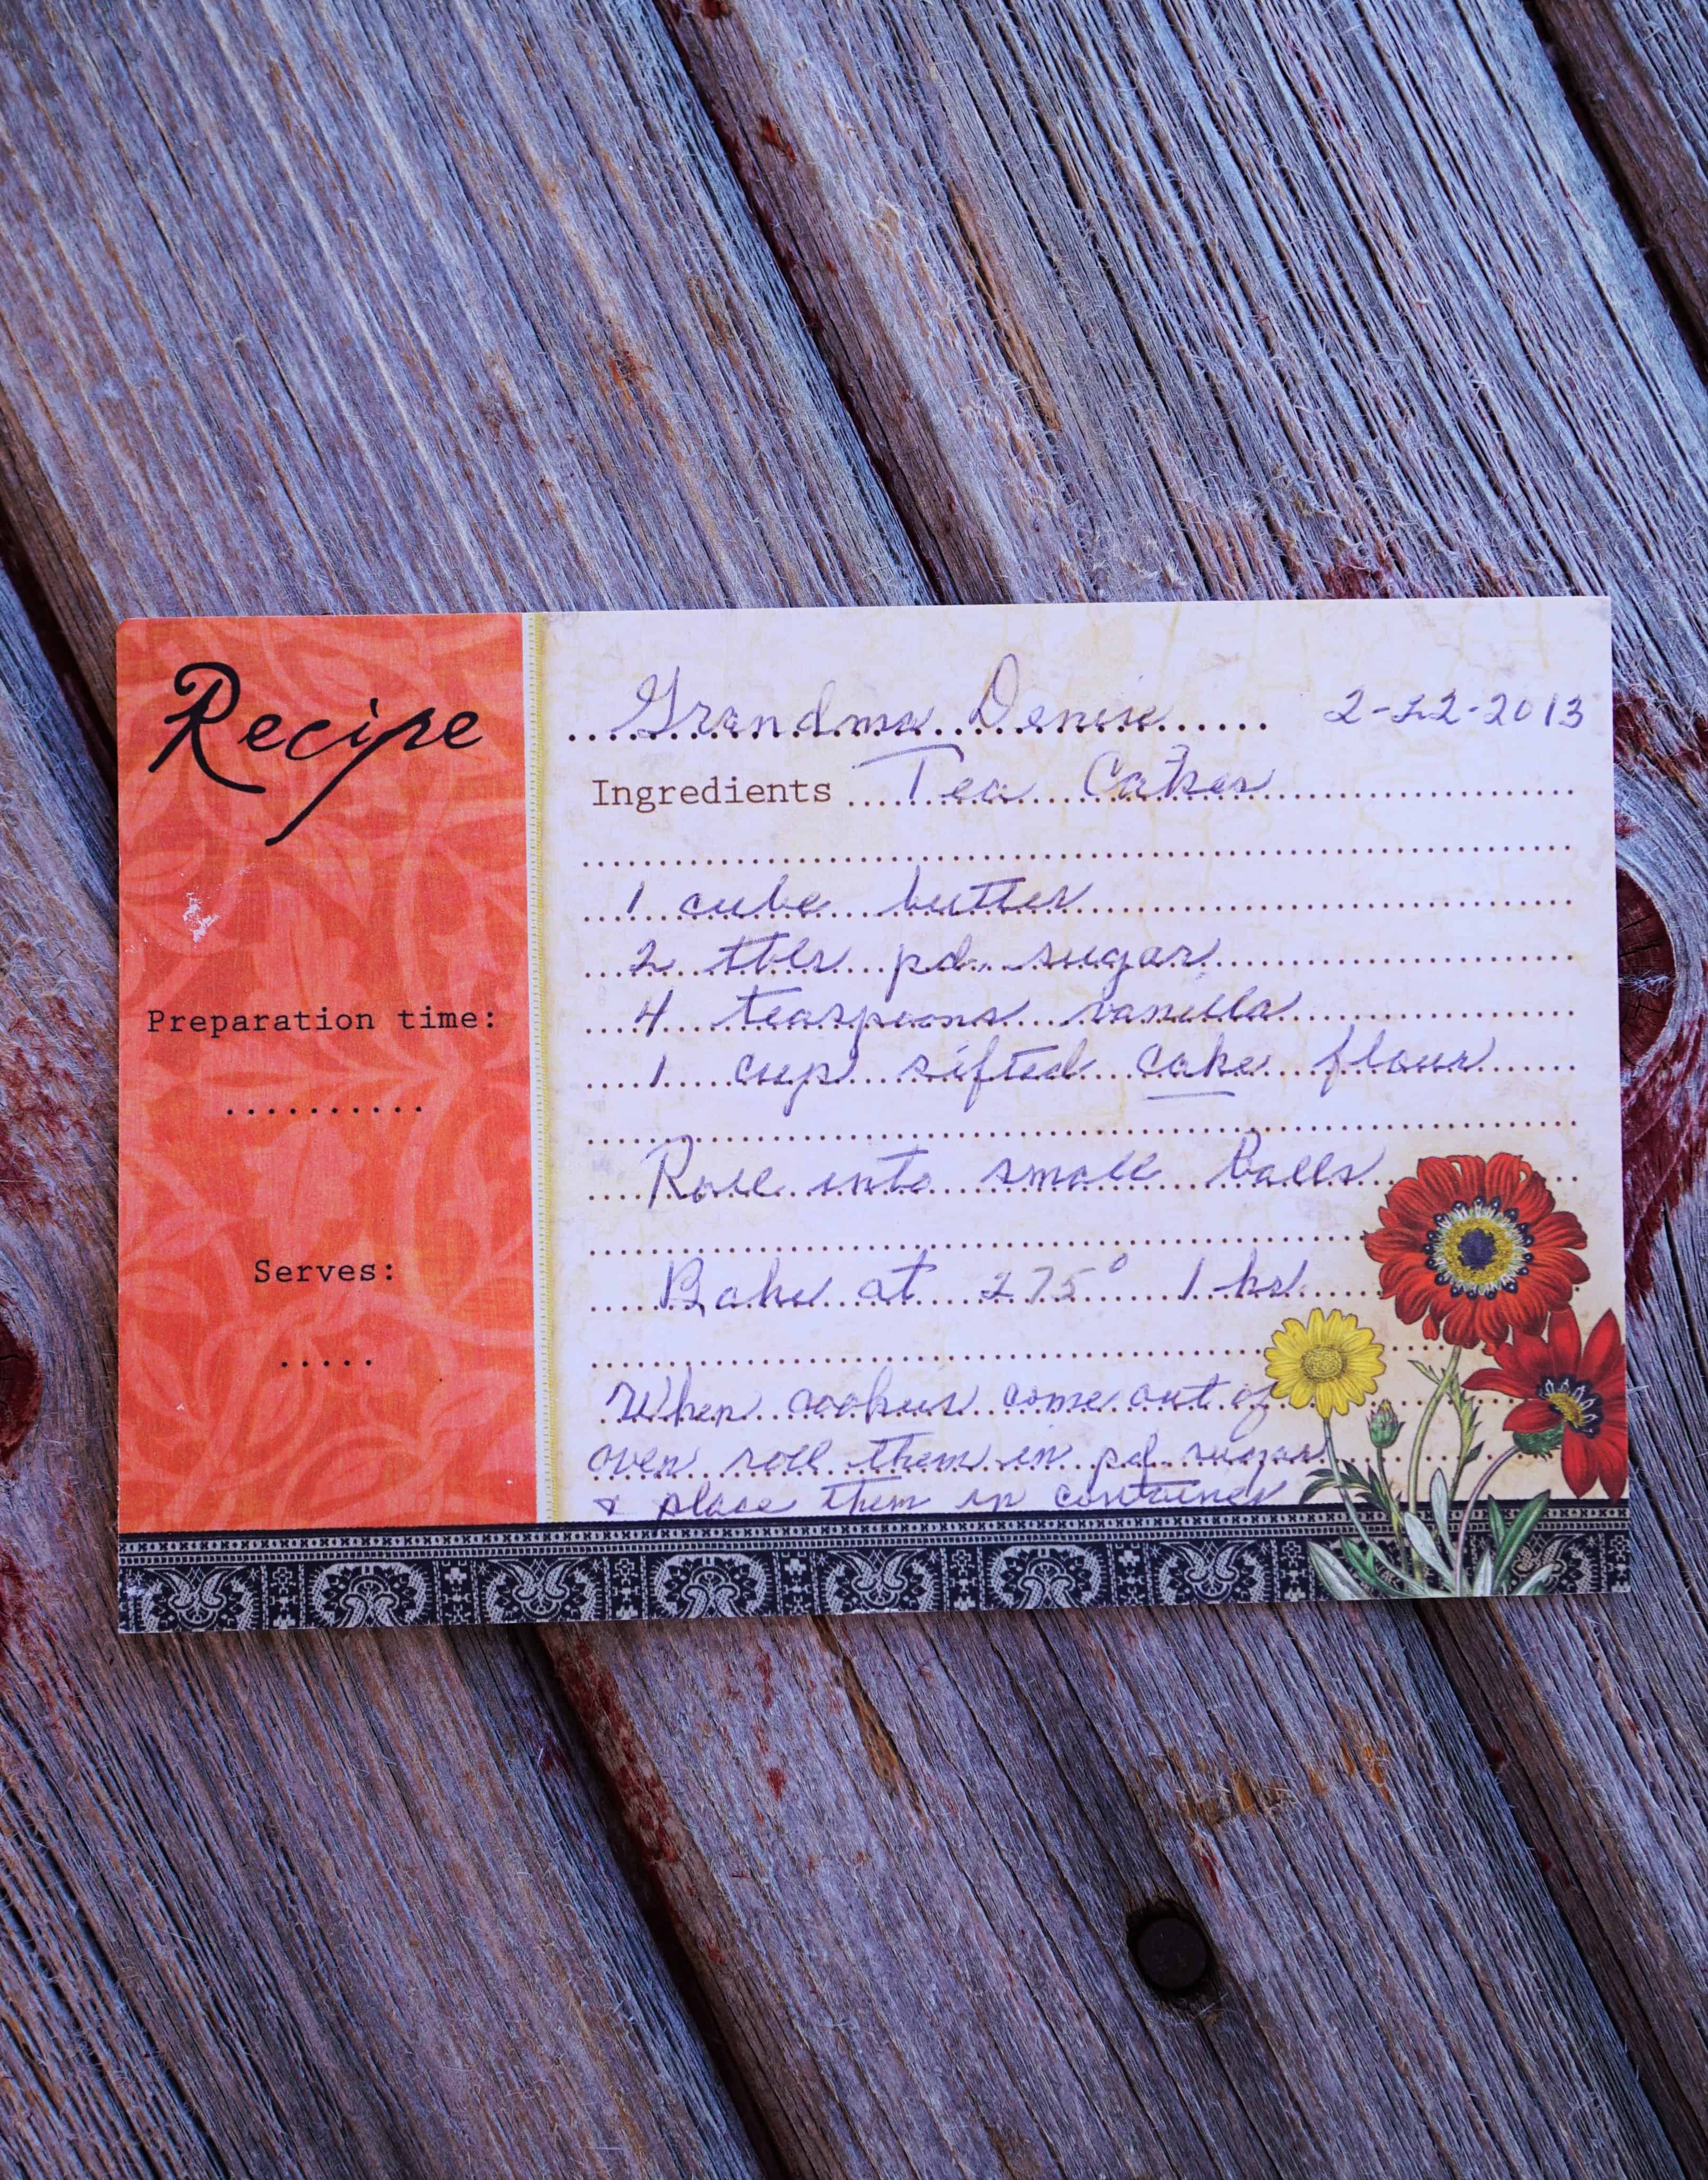 Recipe
Preparation time:
Serves:
Grandma Denise 2-22-2013
Ingredients Tea Cakes
1 cube butter
2 tbls pd. sugar
4 teaspoons vanilla
1 cup sifted cake flour
Roll into small Balls
Bake at 275° 1 hr.
When cookies come out of
oven roll them in pd. sugar
& place them in container